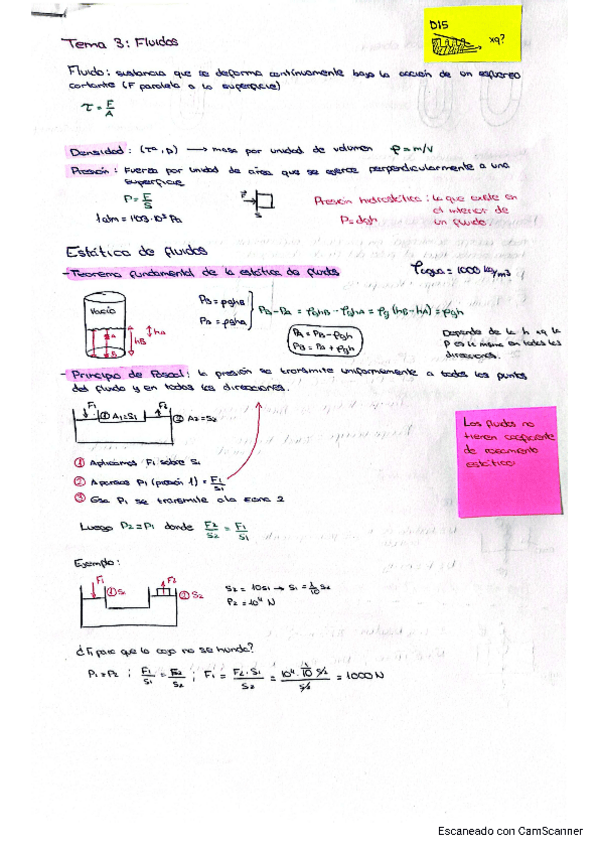 D15
xq?
Tema 3: Fluidos
Fluido: sustancia que se deforma continuamente bajo la acción de un esfuerzo
cortante (F paralela a la superficie)
τ = F/A
Densidad: (Tª, p) → masa por unidad de volumen ρ = m/V
Presión: Fuerza por unidad de área que se ejerce perpendicularmente a una
superficie
P = F/S
F
S
1atm = 1'103·10⁵ Pa
Presión hidrostática: la que existe en
el interior de
un fluido.
P = dgh
Estática de fluidos
- Teorema fundamental de la estática de fluidos
ρagua = 1000 kg/m3
Vacío
A
B
hA
hB
PB = ρghB
PB = ρghA
PB - PA = ρghB - ρghA = ρg(hB - hA) = ρgh
PA = PB - ρgh
PB = PA + ρgh
Depende de la h xq la
P es la misma en todas las
direcciones.
- Principio de Pascal: la presión se transmite uniformemente a todos los puntos
del fluido y en todas las direcciones.
F1
F2
① A1=S1
② A2=S2
① Aplicamos F1 sobre S1
② Aparece P1 (presión 1) = F1/S1
③ Esa P1 se transmite a la zona 2
Luego P2 = P1 donde F2/S2 = F1/S1
Los fluidos no
tienen coeficiente
de rozamiento
estático
Ejemplo:
F1
F2
① S1
② S2
S2 = 10S1 → S1 = 1/10 S2
P2 = 10⁴ N
¿F1 para que la caja no se hunda?
P1 = P2 ; F1/S1 = F2/S2 ; F1 = F2·S1/S2 = 10⁴·1/10 S2/S2 = 1000N
Escaneado con CamScanner